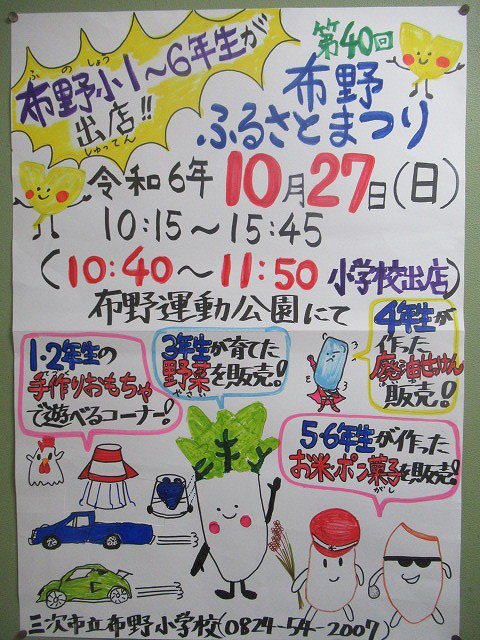 ふの しょう
布野小1～6年生が
出店!!
しゅってん
第40回
布野
ふるさとまつり
令和6年 10月27日(日)
10:15～15:45
(10:40～11:50 小学校出店)
布野運動公園にて
1・2年生の
手作りおもちゃ
で遊べるコーナー!
3年生が育てた
野菜を販売!
やさい
4年生が
作った
廃油せっけん
販売!
5・6年生が作った
お米ポン菓子を販売!
がし
三次市立布野小学校(0824-54-2007)